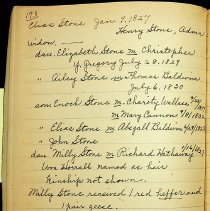 173
Elias Stone Jan. 9, 1827
Henry Stone, Admr
Widow,
dau. Elizabeth Stone m Christopher
Gregory July 28, 1829
" Ailey Stone m Thomas Baldwin
July 6, 1820
son Enoch Stone m Charity Wallace
m Mary Cannon
" Elias Stone m Abigail Baldwin
" John Stone
dau Milly Stone m Richard Hathaway
Wm Horall named as heir
kinship not shown.
Milly Stone received 1 red heffer and
1 pair geese.